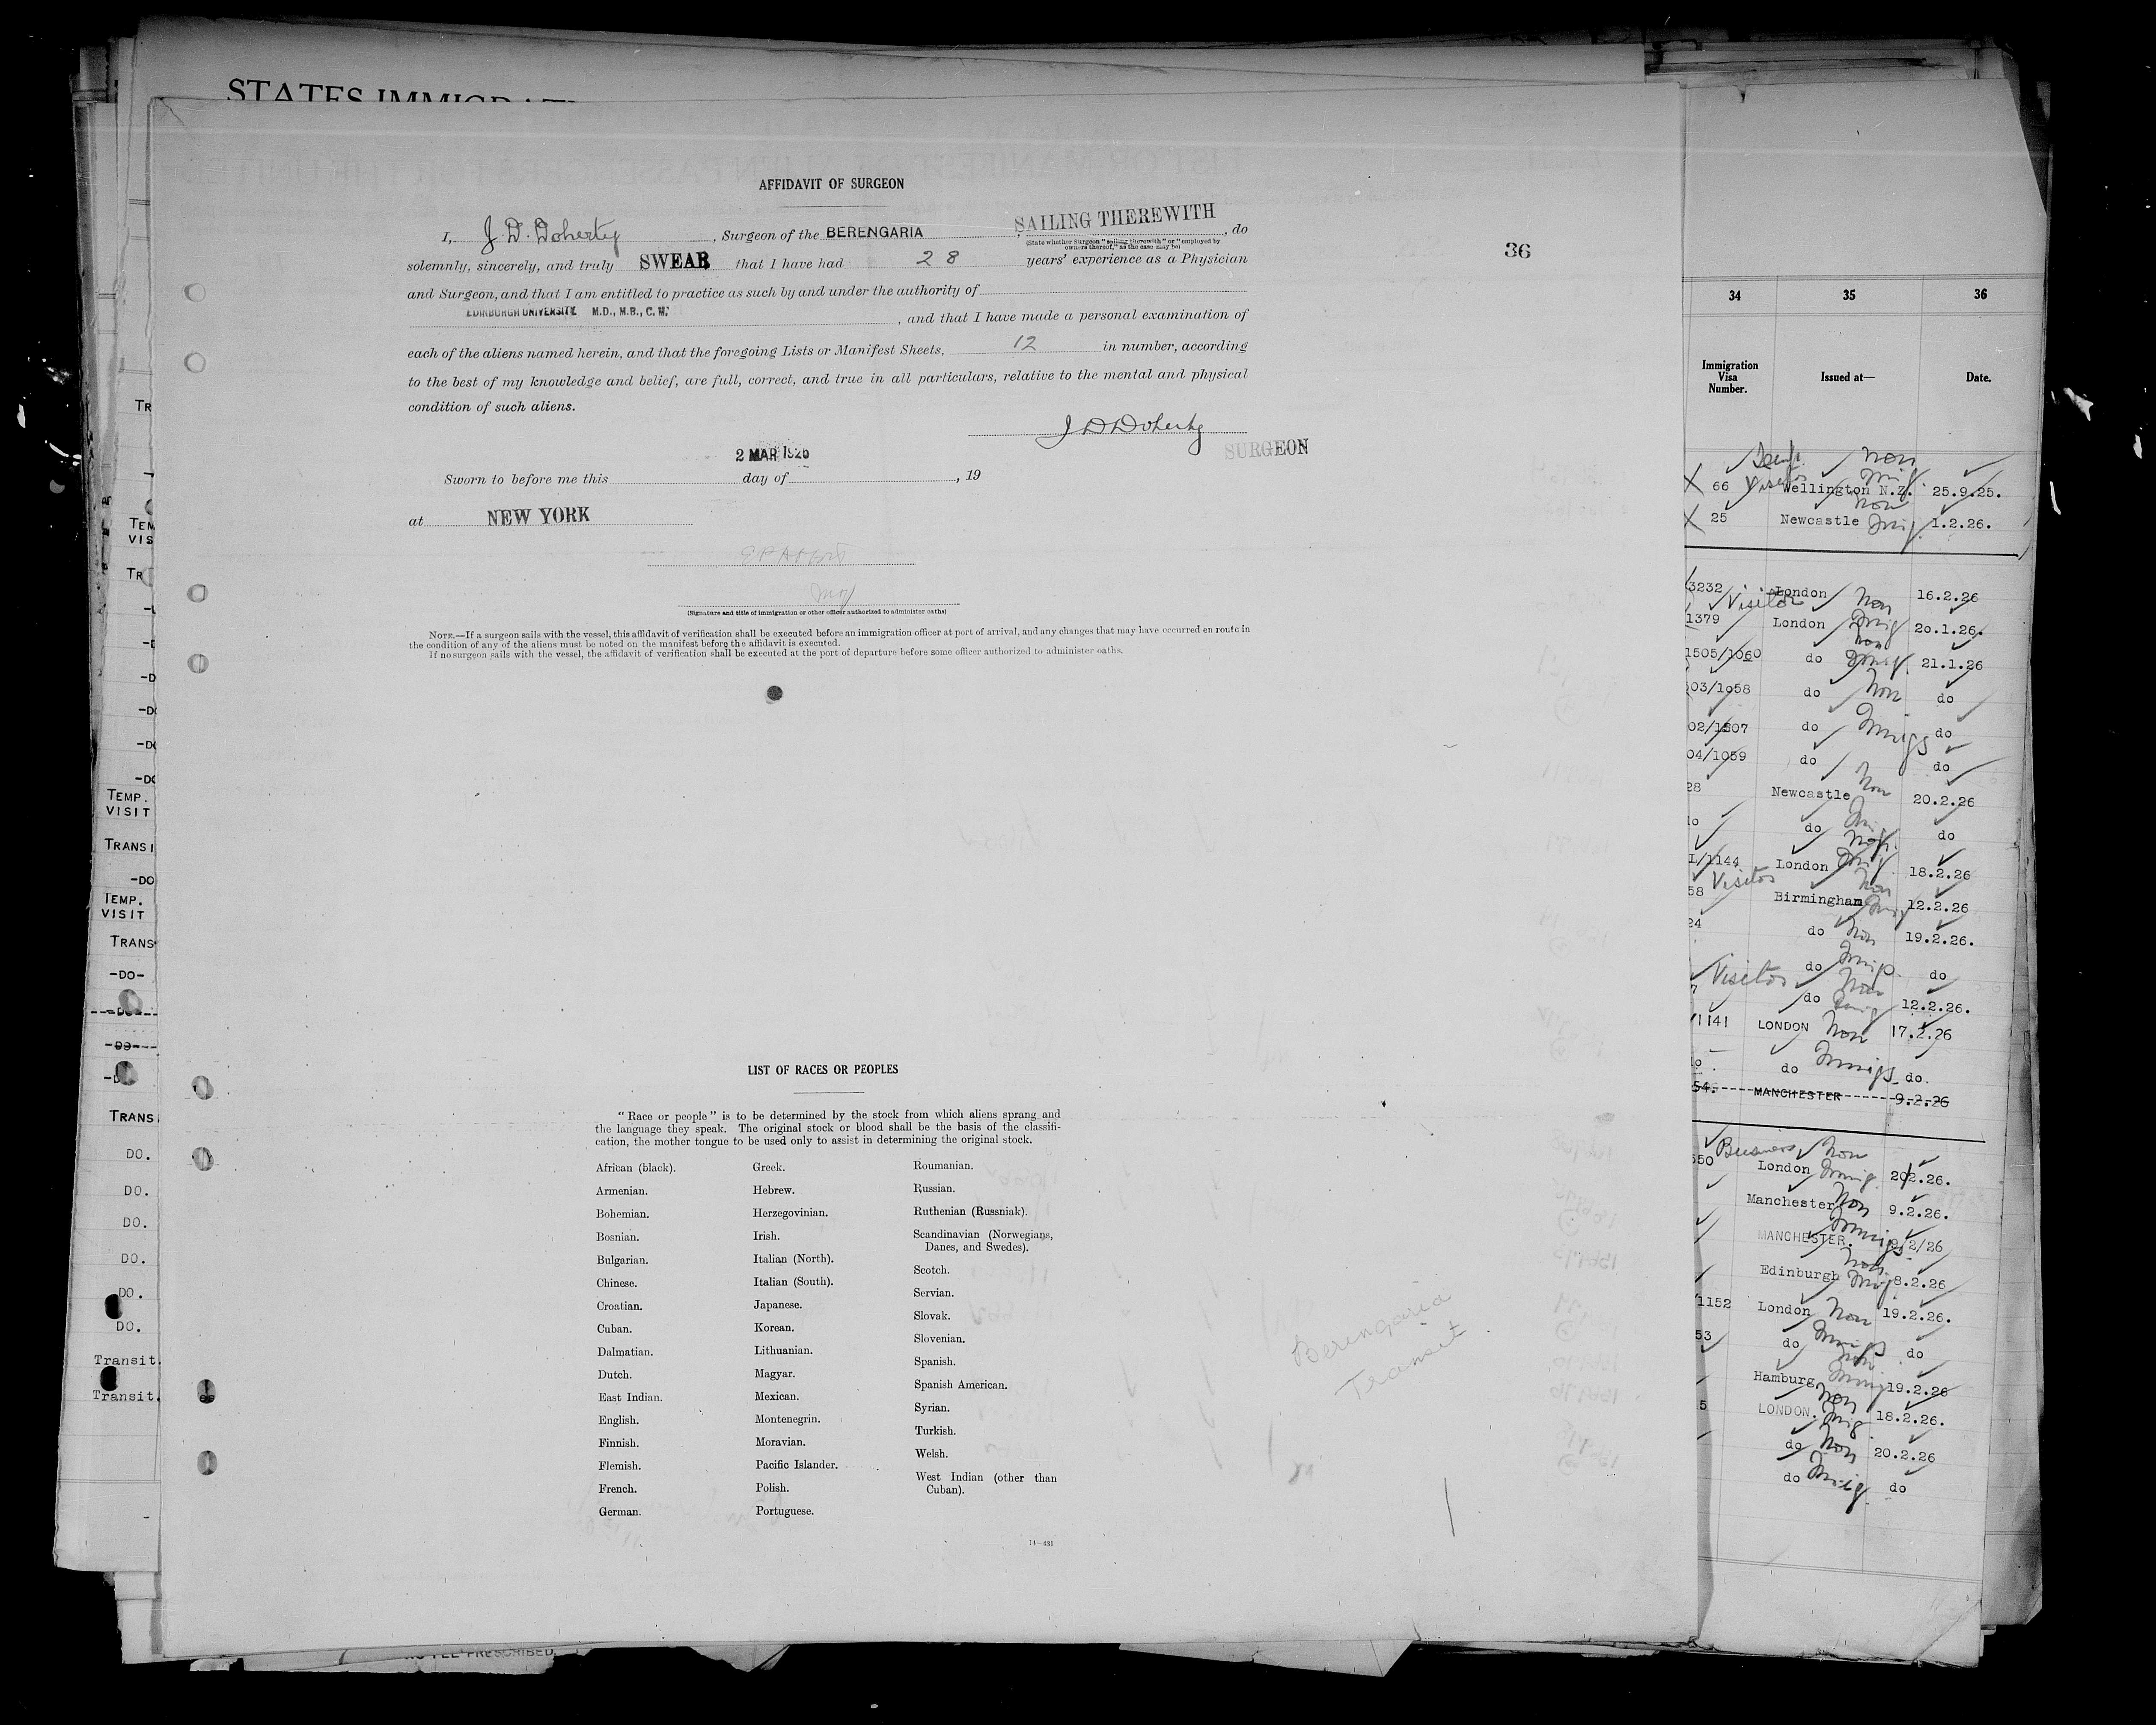 STATES IMMIGRATI
AFFIDAVIT OF SURGEON
I, J. D. Doherty, Surgeon of the BERENGARIA, SAILING THEREWITH, do
(State whether Surgeon "sailing therewith" or "employed by
owners thereof," as the case may be)
36
solemnly, sincerely, and truly SWEAR that I have had 28 years' experience as a Physician
and Surgeon, and that I am entitled to practice as such by and under the authority of
EDINBURGH UNIVERSITY. M.D., M.B., C.M. , and that I have made a personal examination of
each of the aliens named herein, and that the foregoing Lists or Manifest Sheets, 12 in number, according
to the best of my knowledge and belief, are full, correct, and true in all particulars, relative to the mental and physical
condition of such aliens.
J D Doherty
SURGEON
2 MAR 1926
Sworn to before me this day of , 19
at NEW YORK
(Signature and title of immigration or other officer authorized to administer oaths)
NOTE.—If a surgeon sails with the vessel, this affidavit of verification shall be executed before an immigration officer at port of arrival, and any changes that may have occurred en route in
the condition of any of the aliens must be noted on the manifest before the affidavit is executed.
If no surgeon sails with the vessel, the affidavit of verification shall be executed at the port of departure before some officer authorized to administer oaths.
LIST OF RACES OR PEOPLES
"Race or people" is to be determined by the stock from which aliens sprang and
the language they speak. The original stock or blood shall be the basis of the classifi-
cation, the mother tongue to be used only to assist in determining the original stock.
African (black).
Armenian.
Bohemian.
Bosnian.
Bulgarian.
Chinese.
Croatian.
Cuban.
Dalmatian.
Dutch.
East Indian.
English.
Finnish.
Flemish.
French.
German.
Greek.
Hebrew.
Herzegovinian.
Irish.
Italian (North).
Italian (South).
Japanese.
Korean.
Lithuanian.
Magyar.
Mexican.
Montenegrin.
Moravian.
Pacific Islander.
Polish.
Portuguese.
Roumanian.
Russian.
Ruthenian (Russniak).
Scandinavian (Norwegians,
Danes, and Swedes).
Scotch.
Servian.
Slovak.
Slovenian.
Spanish.
Spanish American.
Syrian.
Turkish.
Welsh.
West Indian (other than
Cuban).
14—431
Berengaria
Transit
TR
TEM
VIS
TR
-D
-DO
-DO
-DO
TEMP.
VISIT
TRANSI
-DO
TEMP.
VISIT
TRANS
-DO-
-DO-
TRANS
DO.
DO.
DO.
DO.
DO.
DO.
Transit.
Transit.
34 35 36
Immigration
Visa
Number.
Issued at—
Date.
66 Temp. Visitor Wellington N.Z. Non Imig. 25.9.25.
25 Newcastle Non Imig. 1.2.26.
3232 Visitor London Non 16.2.26
1379 London Imig 20.1.26.
1505/1060 do Non Immig. 21.1.26
03/1058 do Non do
02/1307 do Immigs do
04/1059 do do
28 Newcastle Non 20.2.26
do do Imig do
1/1144 London Non Imig. 18.2.26
58 Visitor Birmingham Non Imig 12.2.26
24 do Non 19.2.26.
do Immig. do
7 Visitor do Non Immig 12.2.26.
/1141 LONDON Non 17.2.26
do. do Immigs do.
54. MANCHESTER 9.2.26
550 Business London Non Immig. 20.2.26.
Manchester Non 9.2.26.
MANCHESTER. Immigs 9/2/26
Edinburgh Non Imig 8.2.26
/1152 London Non 19.2.26.
53 do Immigs do
Hamburg Non Immig 19.2.26
5 LONDON. Non Imig 18.2.26.
do Non 20.2.26
do Immig. do
LLE PRESCRIBED.